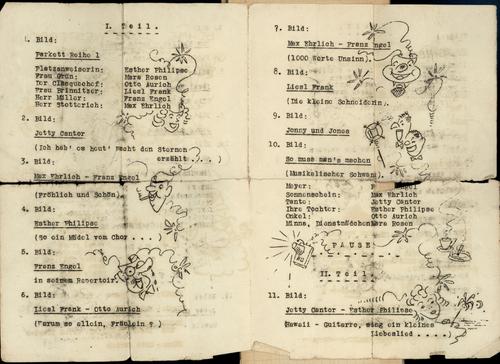 I. Teil.
1. Bild:
Parkett Reihe 1
Platzanweiserin: Esther Philipse
Frau Grün: Mara Rosen
Der Claquechef: Otto Aurich
Frau Brinnitzer: Liesl Frank
Herr Müller: Franz Engel
Herr Stotterich: Max Ehrlich
2. Bild:
Jetty Cantor
(Ich hab' es heut' Nacht den Sternen
erzählt . . . )
3. Bild:
Max Ehrlich - Franz Engel
(Fröhlich und Schön)
4. Bild:
Esther Philipse
(So ein Mädel vom Chor . . . .)
5. Bild:
Franz Engel
in seinem Repertoir.
6. Bild:
Liesl Frank - Otto Aurich
(Warum so allein, Fräulein ?)
7. Bild:
Max Ehrlich - Franz Engel
(1000 Worte Unsinn).
8. Bild:
Liesl Frank
(Die kleine Schneiderin).
9. Bild:
Jonny und Jones
10. Bild:
So muss man's machen
(Musikalischer Schwank).
Meyer: Engel
Sonnenschein: Max Ehrlich
Tante: Jetty Cantor
Ihre Tochter: Esther Philipse
Onkel: Otto Aurich
Minna, Dienstmädchen: Mara Rosen
PAUSE
II. Teil
11. Bild:
Jetty Cantor - Esther Philipse
Hawaii - Guitarre, sing ein kleines
Liebeslied . . . .)